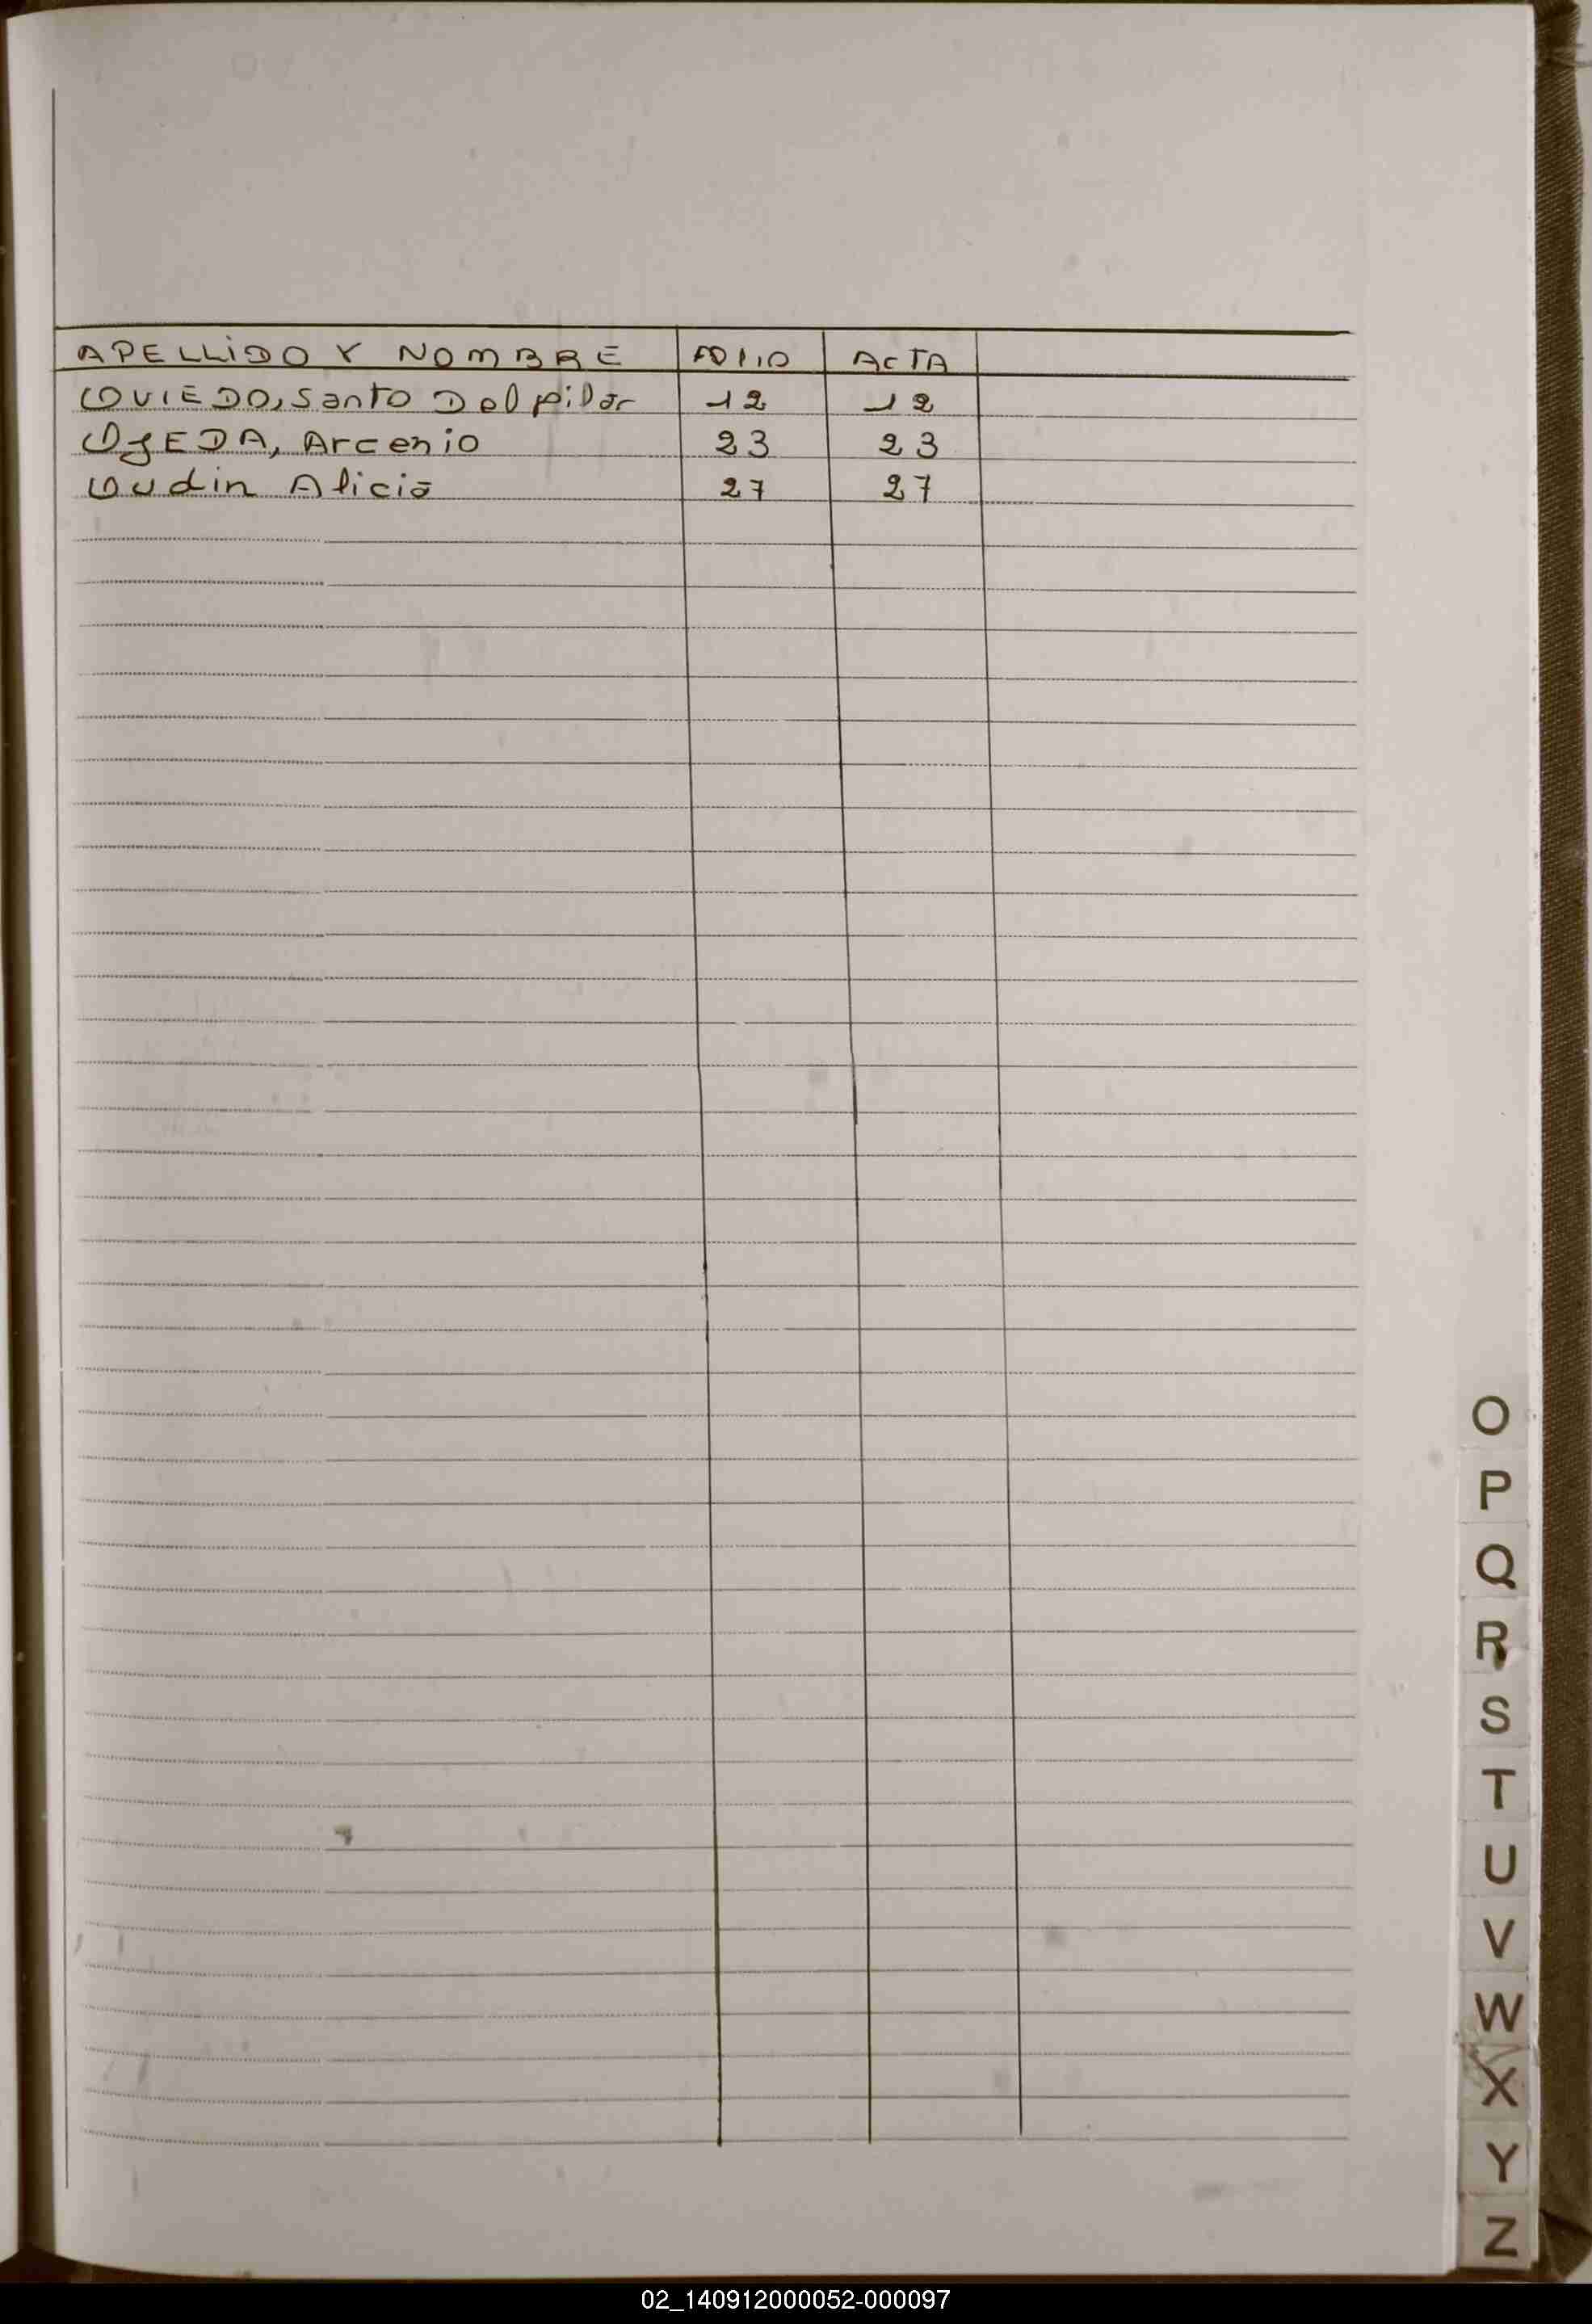 APELLIDO Y NOMBRE FOLIO ACTA
OVIEDO, Santo Del pilar 12 12
OJEDA, Arcenio 23 23
Oudin Alicia 27 27
O
P
Q
R
S
T
U
V
W
X
Y
Z
02_140912000052-000097